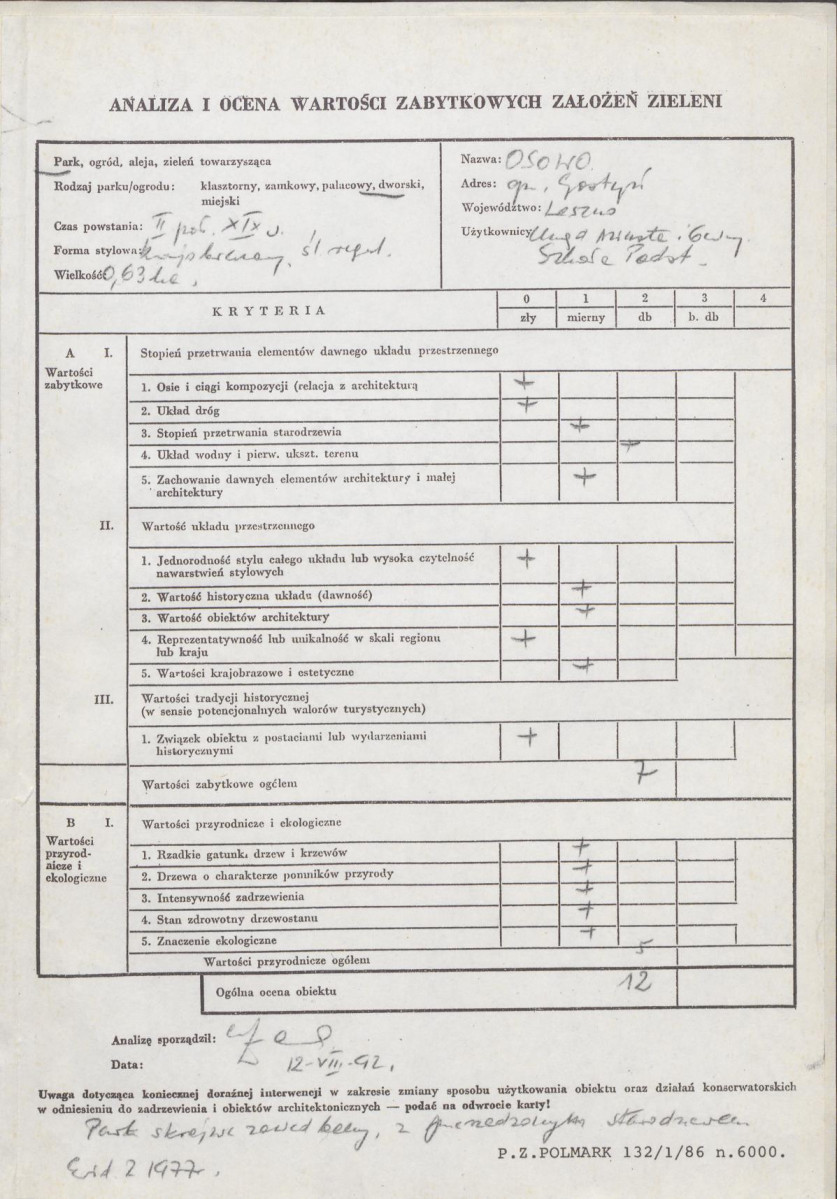 ANALIZA I OCENA WARTOŚCI ZABYTKOWYCH ZAŁOŻEŃ ZIELENI
Park, ogród, aleja, zieleń towarzysząca
Rodzaj parku/ogrodu: klasztorny, zamkowy, pałacowy, dworski,
miejski
Czas powstania: II poł. XIX w.
Forma stylowa: krajobrazowy,
Wielkość: 0,63 ha.
Nazwa: OSOWO
Adres: gm. Gostyń
Województwo: Leszno
Użytkownicy: Urząd Miasta i Gminy
Szkoła Podst.
KRYTERIA
0 1 2 3 4
zły mierny db b. db
A I. Stopień przetrwania elementów dawnego układu przestrzennego
Wartości
zabytkowe
1. Osie i ciągi kompozycji (relacja z architekturą +
2. Układ dróg +
3. Stopień przetrwania starodrzewia +
4. Układ wodny i pierw. ukszt. terenu +
5. Zachowanie dawnych elementów architektury i małej +
architektury
II. Wartość układu przestrzennego
1. Jednorodność stylu całego układu lub wysoka czytelność +
nawarstwień stylowych
2. Wartość historyczna układu (dawność) +
3. Wartość obiektów architektury +
4. Reprezentatywność lub unikalność w skali regionu +
lub kraju
5. Wartości krajobrazowe i estetyczne +
III. Wartości tradycji historycznej
(w sensie potencjonalnych walorów turystycznych)
1. Związek obiektu z postaciami lub wydarzeniami +
historycznymi
Wartości zabytkowe ogółem 7
B I. Wartości przyrodnicze i ekologiczne
Wartości
przyrod-
nicze i
ekologiczne
1. Rzadkie gatunki drzew i krzewów +
2. Drzewa o charakterze pomników przyrody +
3. Intensywność zadrzewienia +
4. Stan zdrowotny drzewostanu +
5. Znaczenie ekologiczne +
Wartości przyrodnicze ogółem 5
Ogólna ocena obiektu 12
Analizę sporządził:
Data: 12-VIII-92.
Uwaga dotycząca koniecznej doraźnej interwencji w zakresie zmiany sposobu użytkowania obiektu oraz działań konserwatorskich
w odniesieniu do zadrzewienia i obiektów architektonicznych — podać na odwrocie karty!
Park skrajnie zaniedbany, z starodrzewem
P.Z.POLMARK 132/1/86 n.6000.
Ewid. z 1977r.